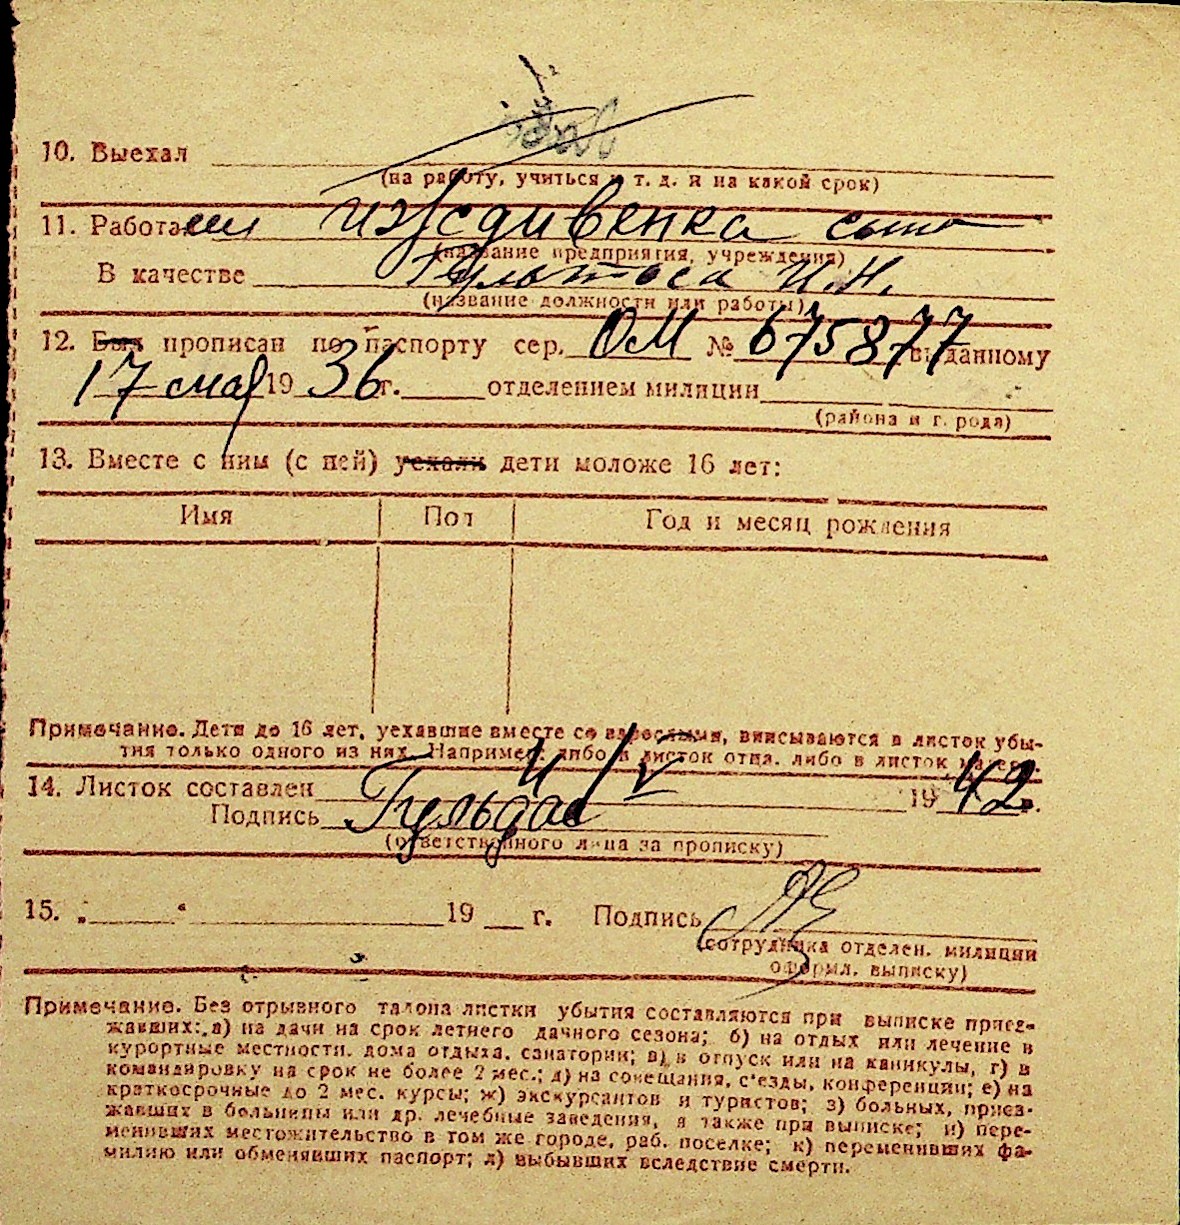 10. Выехал
(на работу, учиться и т. д. и на какой срок)
11. Работа иждивенка сына
(название предприятия, учреждения)
В качестве И.Н.
(название должности или работы)
12. Был прописан по паспорту сер. ОМ № 675877 выданному
17 мая 19 36 г. отделением милиции
(района и города)
13. Вместе с ним (с ней) уехали дети моложе 16 лет:
Имя Пол Год и месяц рождения
Примечание. Дети до 16 лет, уехавшие вместе со взрослыми, вписываются в листок убы-
тия только одного из них. Например: либо в листок отца, либо в листок матери.
14. Листок составлен 4/V 1942г.
Подпись
(ответственного лица за прописку)
15. „ “ 19 г. Подпись
(сотрудника отделен. милиции
оформл. выписку)
Примечание. Без отрывного талона листки убытия составляются при выписке приез-
жавших: а) на дачи на срок летнего дачного сезона; б) на отдых или лечение в
курортные местности, дома отдыха, санатории; в) в отпуск или на каникулы, г) в
командировку на срок не более 2 мес.; д) на совещания, с'езды, конференции; е) на
краткосрочные до 2 мес. курсы; ж) экскурсантов и туристов; з) больных, приез-
жавших в больницы или др. лечебные заведения, а также при выписке; и) пере-
менивших местожительство в том же городе, раб. поселке; к) переменивших фа-
милию или обменявших паспорт; л) выбывших вследствие смерти.